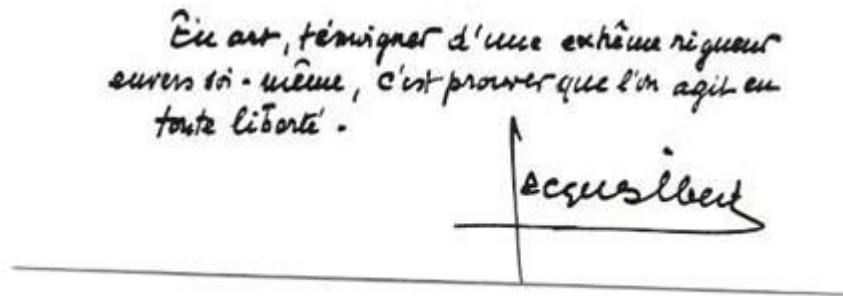 En art, témoigner d'une extrême rigueur
envers soi-même, c'est prouver que l'on agit en
toute liberté.
Jacques Ibert